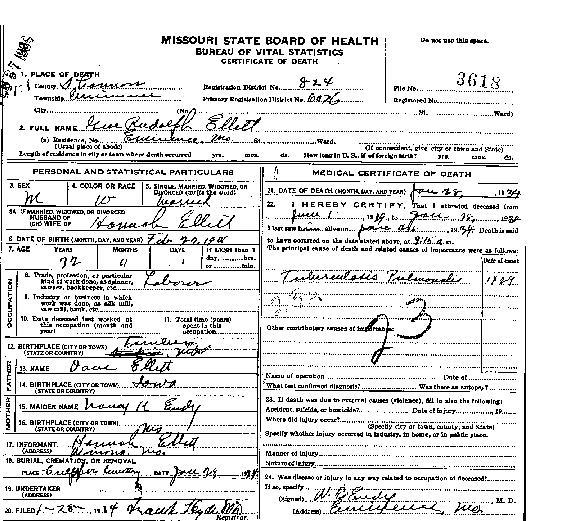 MISSOURI STATE BOARD OF HEALTH
BUREAU OF VITAL STATISTICS
CERTIFICATE OF DEATH
Do not use this space.
1. PLACE OF DEATH
County Shannon
Registration District No. 824
File No. 3618
Township
Primary Registration District No.
Registered No.
City (No. St. Ward)
2. FULL NAME Rudolph Ellett
(a) Residence, No. Eminence, Mo. St. Ward.
(Usual place of abode) (If nonresident, give city or town and State)
Length of residence in city or town where death occurred yrs. mos. ds. How long in U. S., if of foreign birth? yrs. mos. ds.
PERSONAL AND STATISTICAL PARTICULARS
3. SEX M
4. COLOR OR RACE W
5. SINGLE, MARRIED, WIDOWED, OR DIVORCED (write the word) married
5A. IF MARRIED, WIDOWED, OR DIVORCED
HUSBAND OF
(OR) WIFE OF Hannah Ellett
6. DATE OF BIRTH (MONTH, DAY, AND YEAR) Feb 27
7. AGE YEARS MONTHS DAYS If LESS than 1
day, hrs.
or min.
32 11 1
OCCUPATION
8. Trade, profession, or particular
kind of work done, as spinner,
sawyer, bookkeeper, etc. Laborer
9. Industry or business in which
work was done, as silk mill,
saw mill, bank, etc.
10. Date deceased last worked at
this occupation (month and
year)
11. Total time (years)
spent in this
occupation
12. BIRTHPLACE (CITY OR TOWN)
(STATE OR COUNTRY)
FATHER
13. NAME Dave Ellett
14. BIRTHPLACE (CITY OR TOWN) Iowa
(STATE OR COUNTRY)
MOTHER
15. MAIDEN NAME Nancy H Eudy
16. BIRTHPLACE (CITY OR TOWN)
(STATE OR COUNTRY) Mo
17. INFORMANT Hannah Ellett
(ADDRESS) Mo.
18. BURIAL, CREMATION, OR REMOVAL
PLACE Cemetery DATE Jan 29 1934
19. UNDERTAKER
(ADDRESS)
20. FILED 1-28- 1934 Frank Hyde MD
Registrar.
MEDICAL CERTIFICATE OF DEATH
21. DATE OF DEATH (MONTH, DAY, AND YEAR) Jan 28, 1934
22. I HEREBY CERTIFY, That I attended deceased from
June 1, 19 Jan 28, 1934
I last saw alive on Jan 1934 Death is said
to have occurred on the date stated above, at a. m.
The principal cause of death and related causes of importance were as follows:
Date of onset
Tuberculosis Pulmonary 1929
23
Other contributory causes of importance:
Name of operation Date of
What test confirmed diagnosis? Was there an autopsy?
23. If death was due to external causes (violence), fill in also the following:
Accident, suicide, or homicide? Date of injury , 19
Where did injury occur?
(Specify city or town, county, and State)
Specify whether injury occurred in industry, in home, or in public place.
Manner of injury
Nature of injury
24. Was disease or injury in any way related to occupation of deceased?
If so, specify
(Signed) W. Eudy , M. D.
(Address) Eminence, Mo.